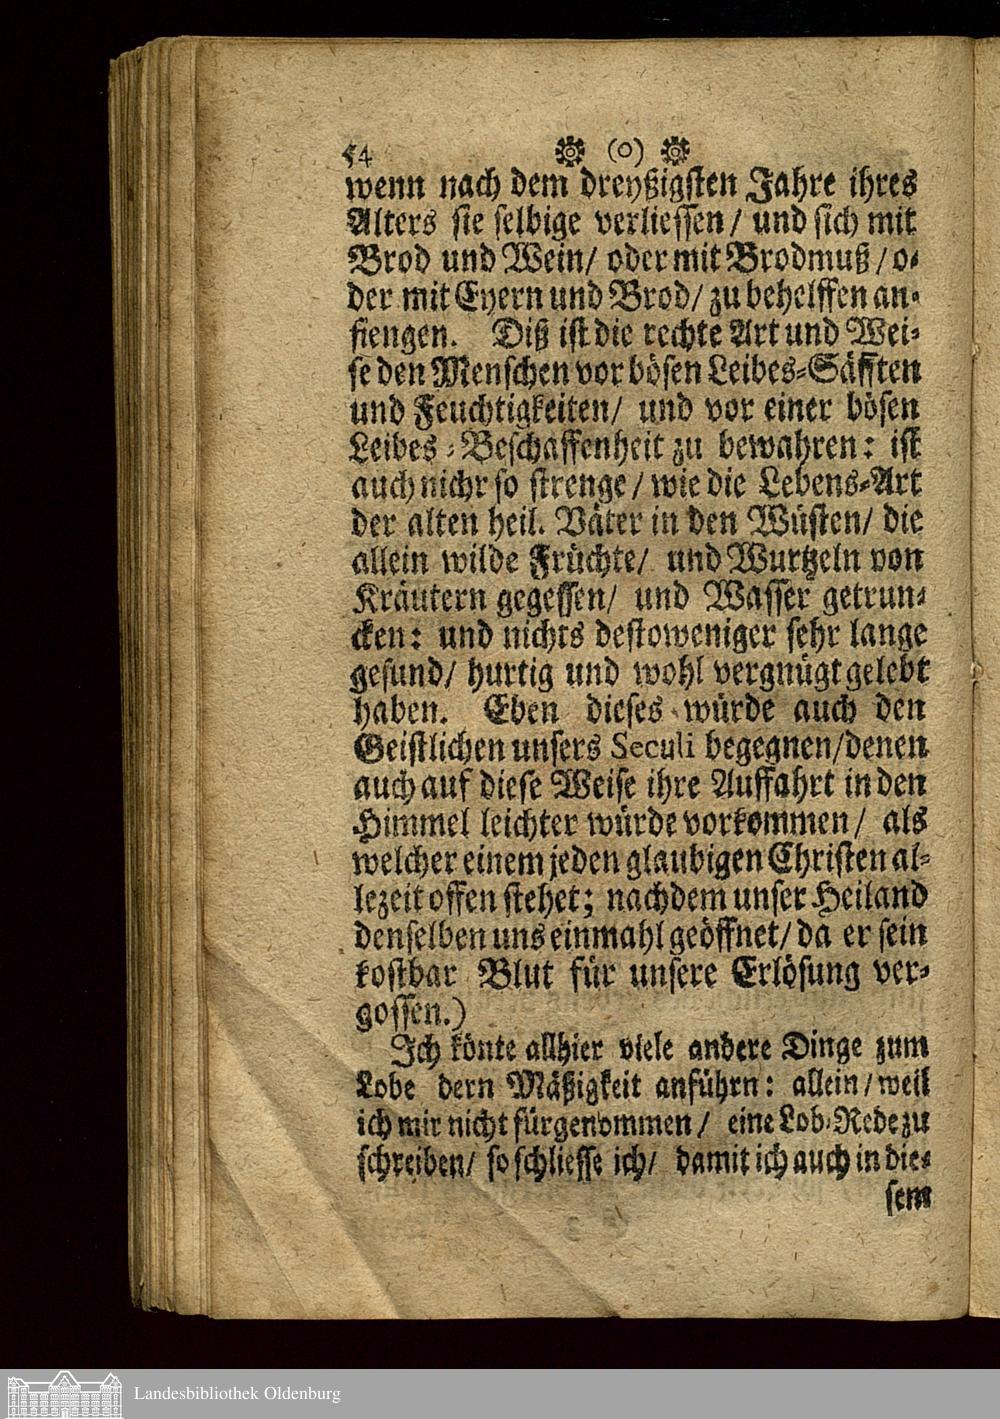 54 (o)
wenn nach dem dreyßigsten Jahre ihres
Alters sie selbige verliessen/ und sich mit
Brod und Wein/ oder mit Brodmuß/ o-
der mit Eyern und Brod/ zu behelffen an-
fiengen. Diß ist die rechte Art und Wei-
se den Menschen vor bösen Leibes-Säfften
und Feuchtigkeiten/ und vor einer bösen
Leibes-Beschaffenheit zu bewahren: ist
auch nichr so strenge/ wie die Lebens-Art
der alten heil. Väter in den Wüsten/ die
allein wilde Früchte/ und Wurtzeln von
Kräutern gegessen/ und Wasser getrun-
cken: und nichts destoweniger sehr lange
gesund/ hurtig und wohl vergnügt gelebt
haben. Eben dieses würde auch den
Geistlichen unsers Seculi begegnen/denen
auch auf diese Weise ihre Auffahrt in den
Himmel leichter würde vorkommen/ als
welcher einem jeden glaubigen Christen al-
lezeit offen stehet; nachdem unser Heiland
denselben uns einmahl geöffnet/ da er sein
kostbar Blut für unsere Erlösung ver-
gossen.)
Ich könte allhier viele andere Dinge zum
Lobe dern Mäßigkeit anführn: allein/ weil
ich mir nicht fürgenommen/ eine Lob-Rede zu
schreiben/ so schliesse ich/ damit ich auch in die-
sem
Landesbibliothek Oldenburg